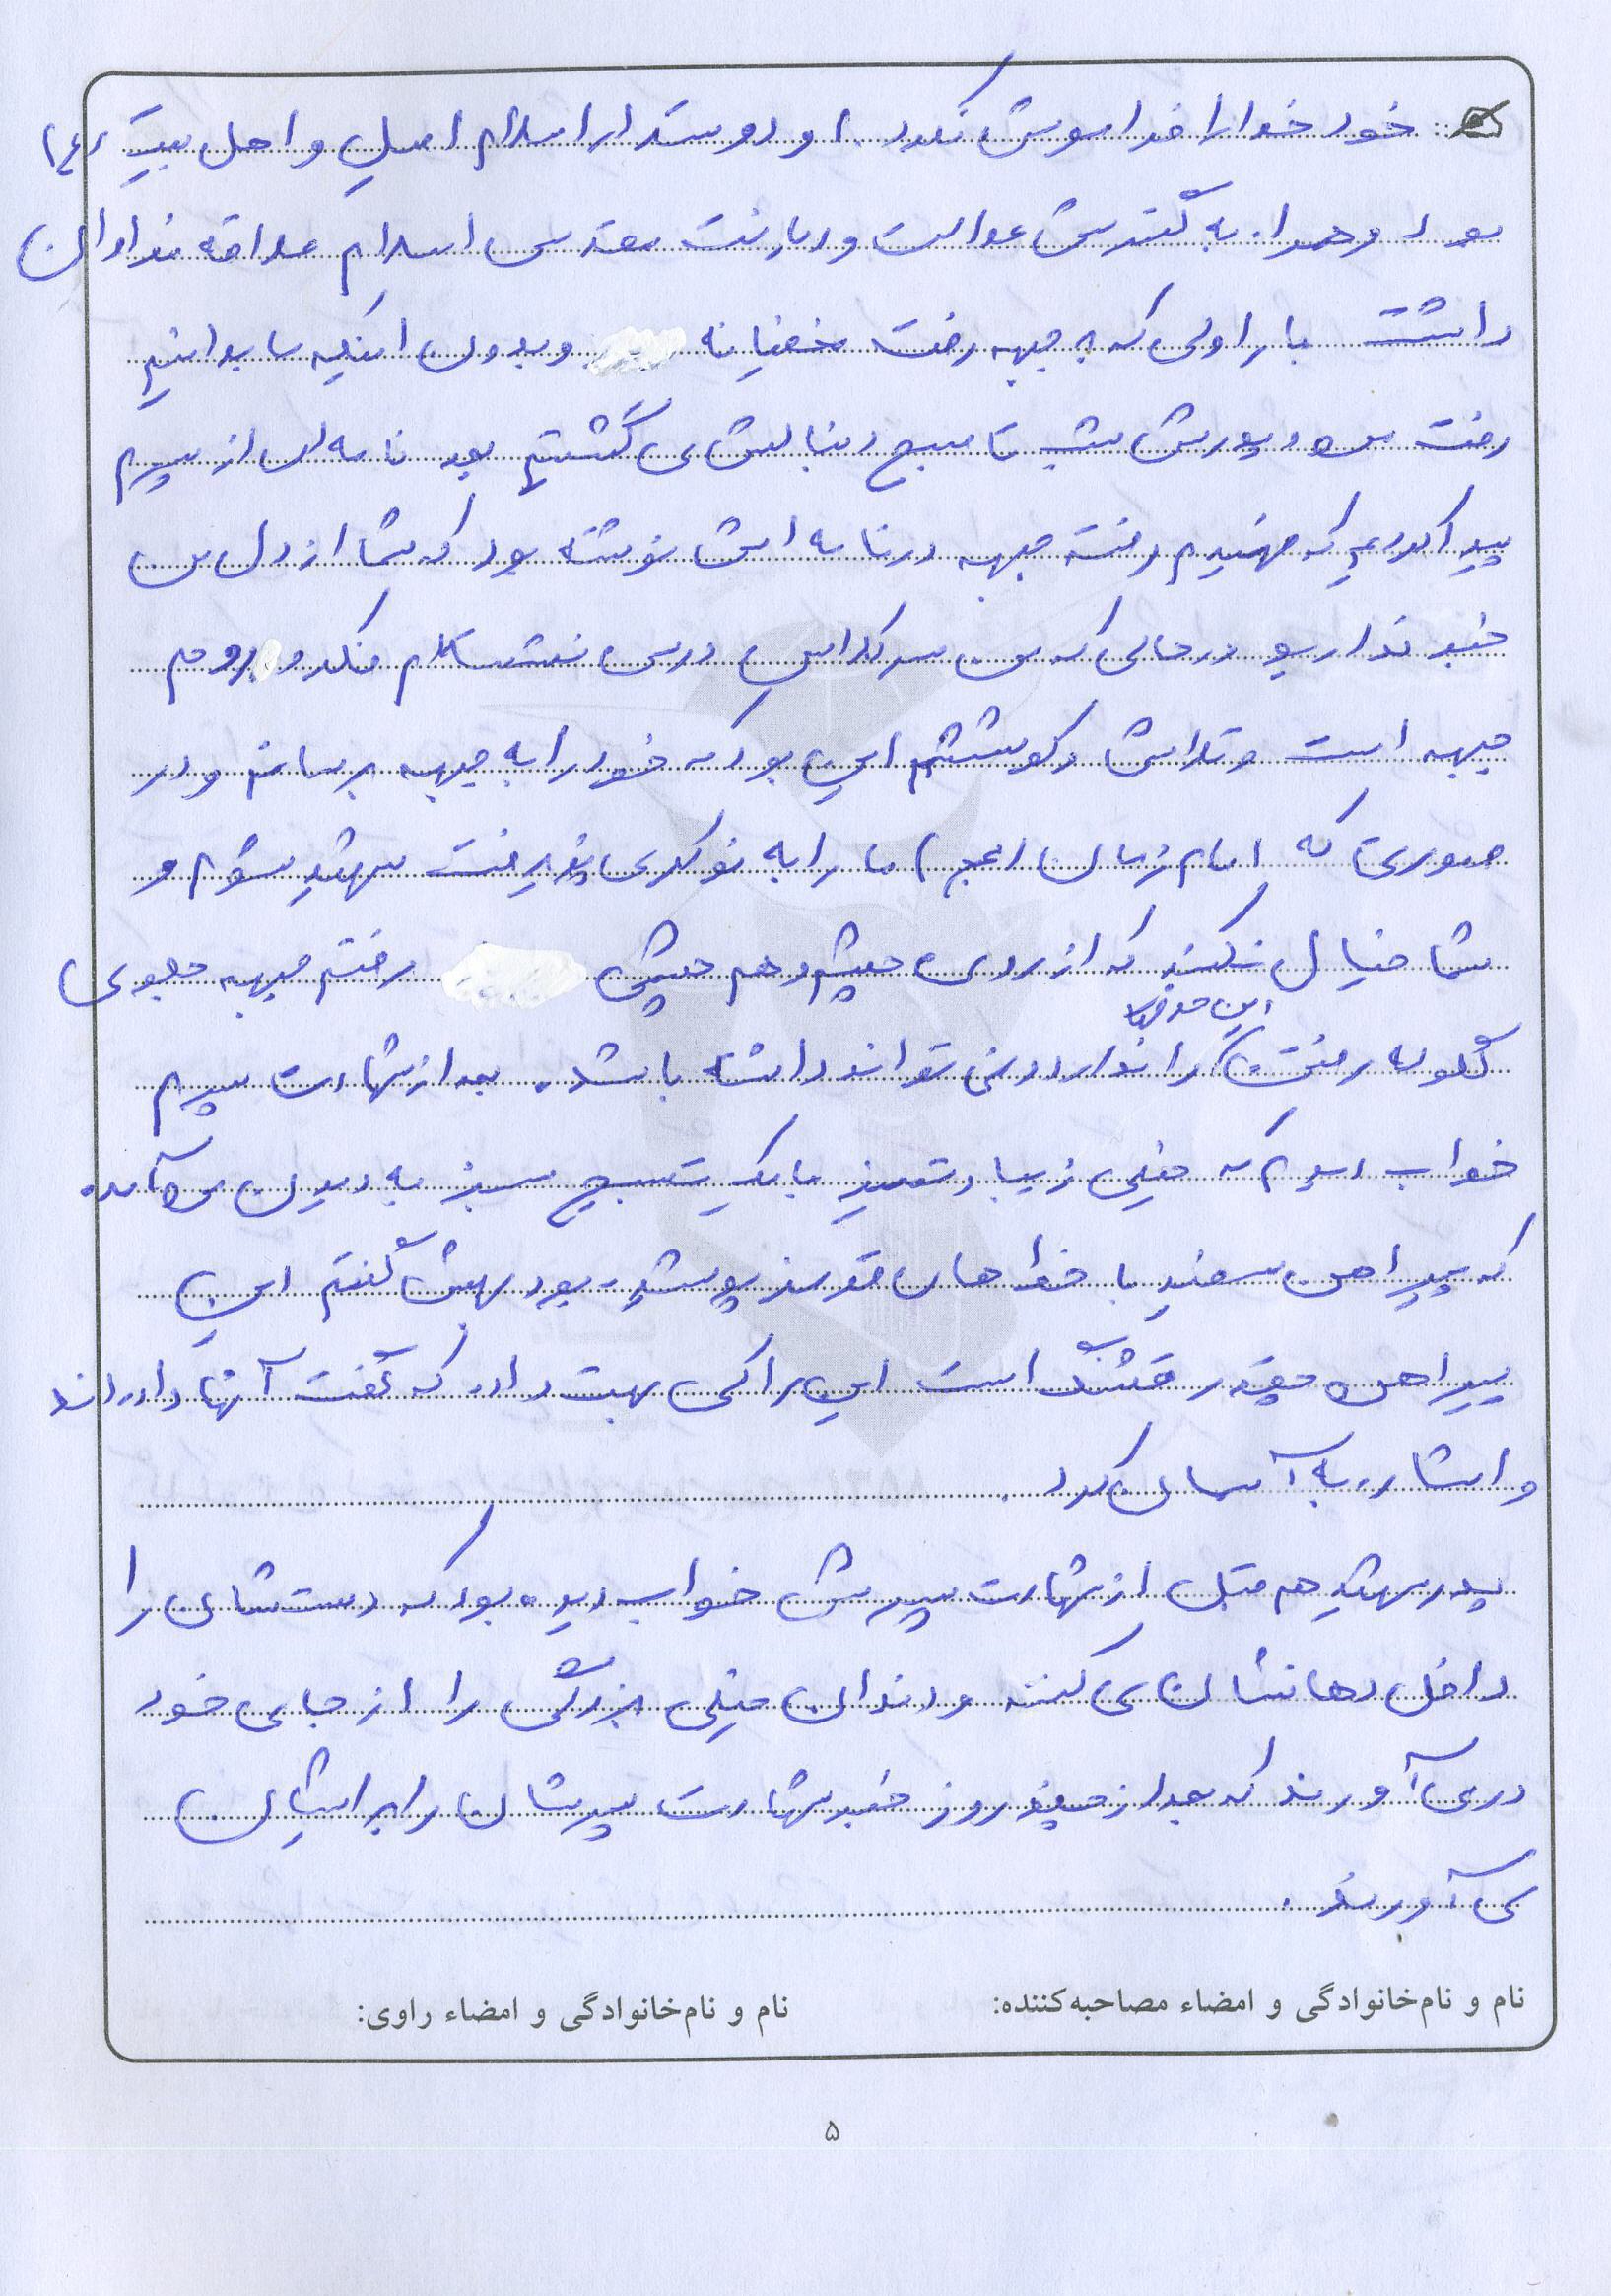 خود خدا را فراموش نکرد. او دوستدار اسلام اصیل و اهل بیت (ع)
بود و همواره به گسترش عدالت و دیانت مقدس اسلام علاقه فراوان
داشت بار اولی که به جبهه رفت مخفیانه و بدون اینکه ما بدانیم
رفت من و پدرش شب تا صبح دنبالش می گشتیم بعد نامه ای از پسرم
پیدا کردیم که فهمیدم رفته جبهه در نامه اش نوشته بود که شما از دل من
خبر ندارید در حالی که من سر کلاس درس نشسته‌ام فکر و روحم
جبهه است و تلاش و کوششم این بود که خود را به جبهه برسانم و در
صورتی که امام زمان (عج) ما را به نوکری پذیرفت شهید شوم و
شما خیال نکنید که از روی چشم و هم چشمی رفتم جبهه جلوی
گلوله رفتن این حرفها را ندارد و نمی تواند داشته باشد. بعد از شهادت پسرم
خواب دیدم که خیلی زیبا و تمیز با یک تسبیح سبز به دیدن من آمده
که پیراهن سفید با خط های قرمز پوشیده بود بهش گفتم این
پیراهن چقدر قشنگ است این را کی بهت داده که گفت آنها داده‌اند
و اشاره به آسمان کرد.
پدر شهید هم قبل از شهادت پسرش خواب دیده بود که دستشان را
داخل دهانشان می کنند و دندان خیلی بزرگی را از جای خود
در می آورند که بعد از چند روز خبر شهادت پسرشان را برایشان
می آورند.
نام و نام‌خانوادگی و امضاء مصاحبه‌کننده: نام و نام‌خانوادگی و امضاء راوی:
۵